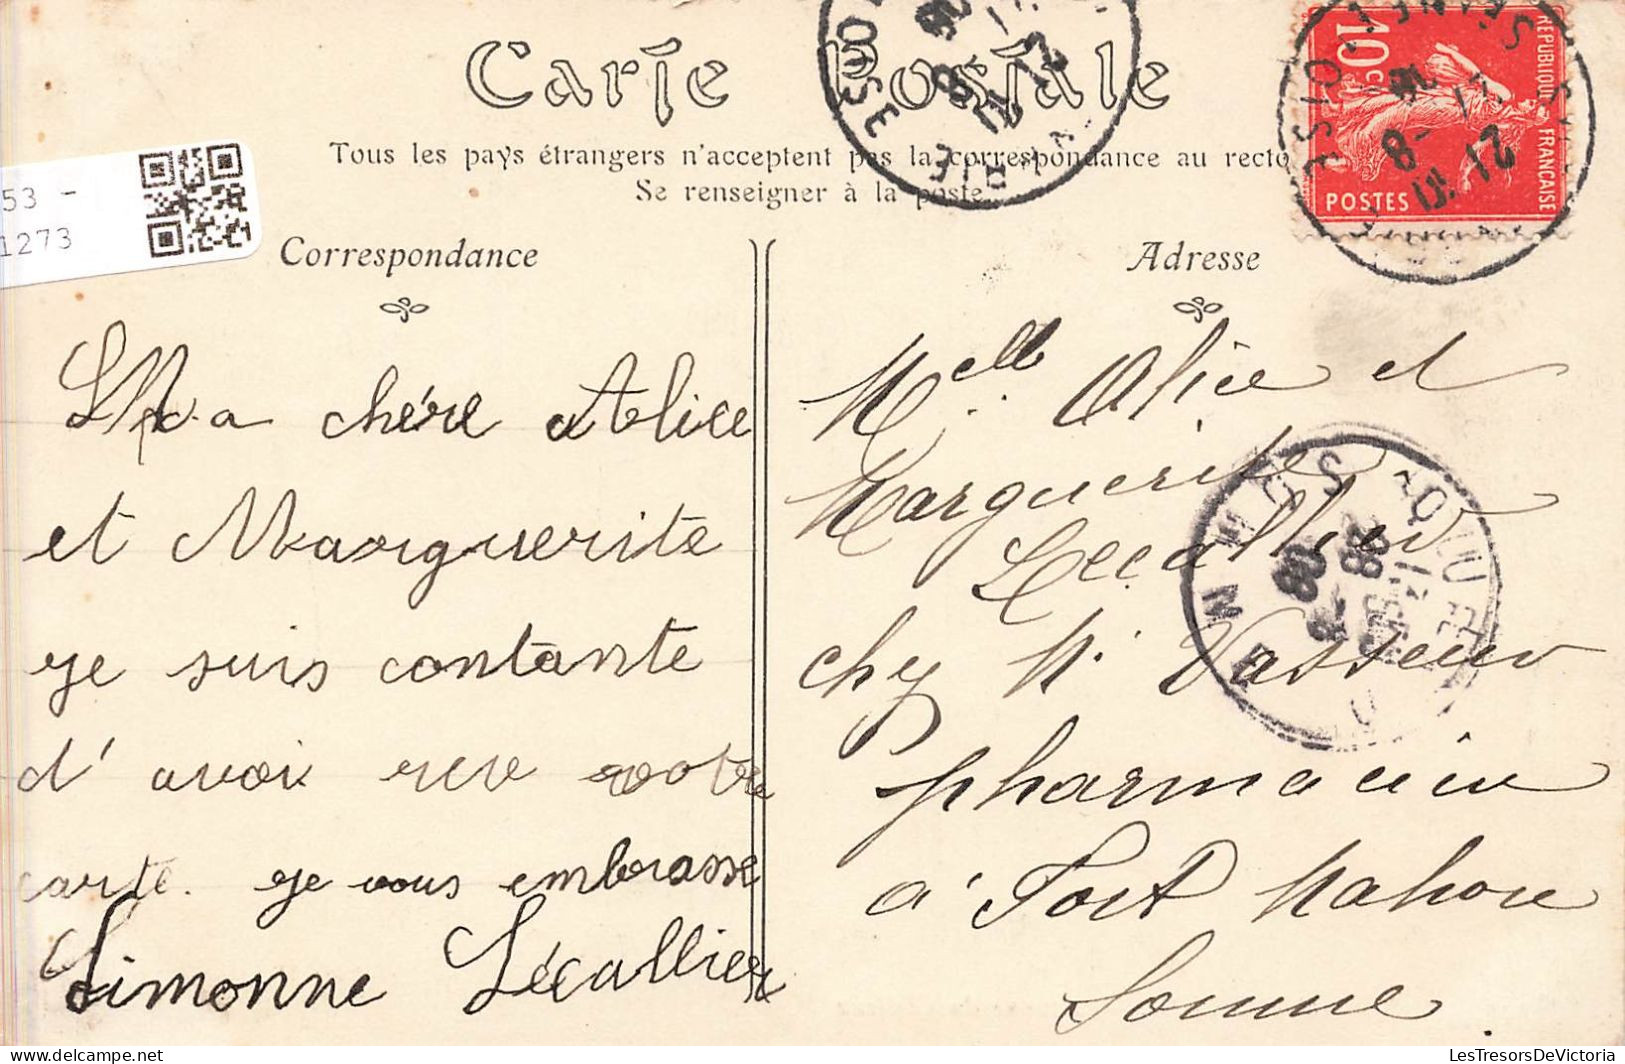 Carte Postale
Tous les pays étrangers n'acceptent pas la correspondance au recto
Se renseigner à la poste
53 -
1273
Correspondance
Ma chére Alice
et Marguerite
je suis contante
d'avoir reçu votre
carte. je vous embrasse
Simonne Lécallier
Adresse
Melle Alice et
Marguerite
Lecallier
chez Mr Vasseur
pharmacien
à Fort Mahon
Somme
REPUBLIQUE FRANÇAISE
10 c
POSTES
SEINE-ET-OISE
8 -
21
OISE
QUEND
SOMME
LesTresorsDeVictoria